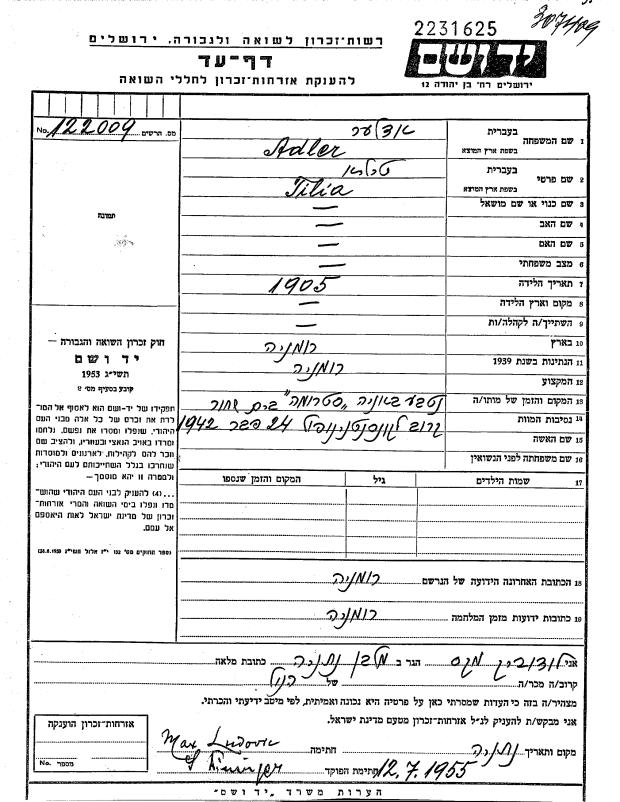 307409
2231625
רשות-זכרון לשואה ולגבורה, ירושלים
דף-עד
להענקת אזרחות-זכרון לחללי השואה
יד ושם
ירושלים רח' בן יהודה 12
No. 122009 מס. הרשים
תמונה
חוק זכרון השואה והגבורה —
יד ושם
תשי"ג 1953
קובע בסעיף מס' 2
תפקידו של יד-ושם הוא לאסוף אל המו-
לדת את זכרם של כל אלה מבני העם
היהודי, שנפלו ומסרו את נפשם, נלחמו
ומרדו באויב הנאצי ובעוזריו, ולהציב שם
וזכר להם לקהילות, לארגונים ולמוסדות
שנחרבו בגלל השתייכותם לעם היהודי;
ולמטרה זו יהא מוסמך—
...(4) להעניק לבני העם היהודי שהוש-
מדו ונפלו בימי השואה והמרי אזרחות-
זכרון של מדינת ישראל לאות היאספם
אל עמם.
1 שם המשפחה בעברית אדלער
בשפת ארץ המוצא Adler
2 שם פרטי בעברית טיליא
בשפת ארץ המוצא Tilia
3 שם כנוי או שם מושאל —
4 שם האב —
5 שם האם —
6 מצב משפחתי —
7 תאריך הלידה 1905
8 מקום וארץ הלידה —
9 השתייך/ה לקהלה/ות —
10 בארץ רומניה
11 הנתינות בשנת 1939 רומניה
12 המקצוע
13 המקום והזמן של מותו/ה נטבע באוניה „סטרומה" בים שחור
14 נסיבות המוות קרוב לקונסטנטינופול 24 פבר 1942
15 שם האשה
16 שם משפחתה לפני הנשואין
17 שמות הילדים גיל המקום והזמן שנספו
18 הכתובת האחרונה הידועה של הנרשם רומניה
19 כתובות ידועות מזמן המלחמה רומניה
אני לודוביק מקס הגר ב נתניה כתובת מלאה
קרוב/ה מכר/ה של הנ"ל
מצהיר/ה בזה כי העדות שמסרתי כאן על פרטיה היא נכונה ואמיתית, לפי מיטב ידיעתי והכרתי.
אני מבקש/ת להעניק לנ"ל אזרחות-זכרון מטעם מדינת ישראל.
מקום ותאריך נתניה התימה Max Ludovic
12.7.1955 חתימת הפוקד
אזרחות-זכרון הוענקה
No. מספר
הערות משרד „יד ושם"